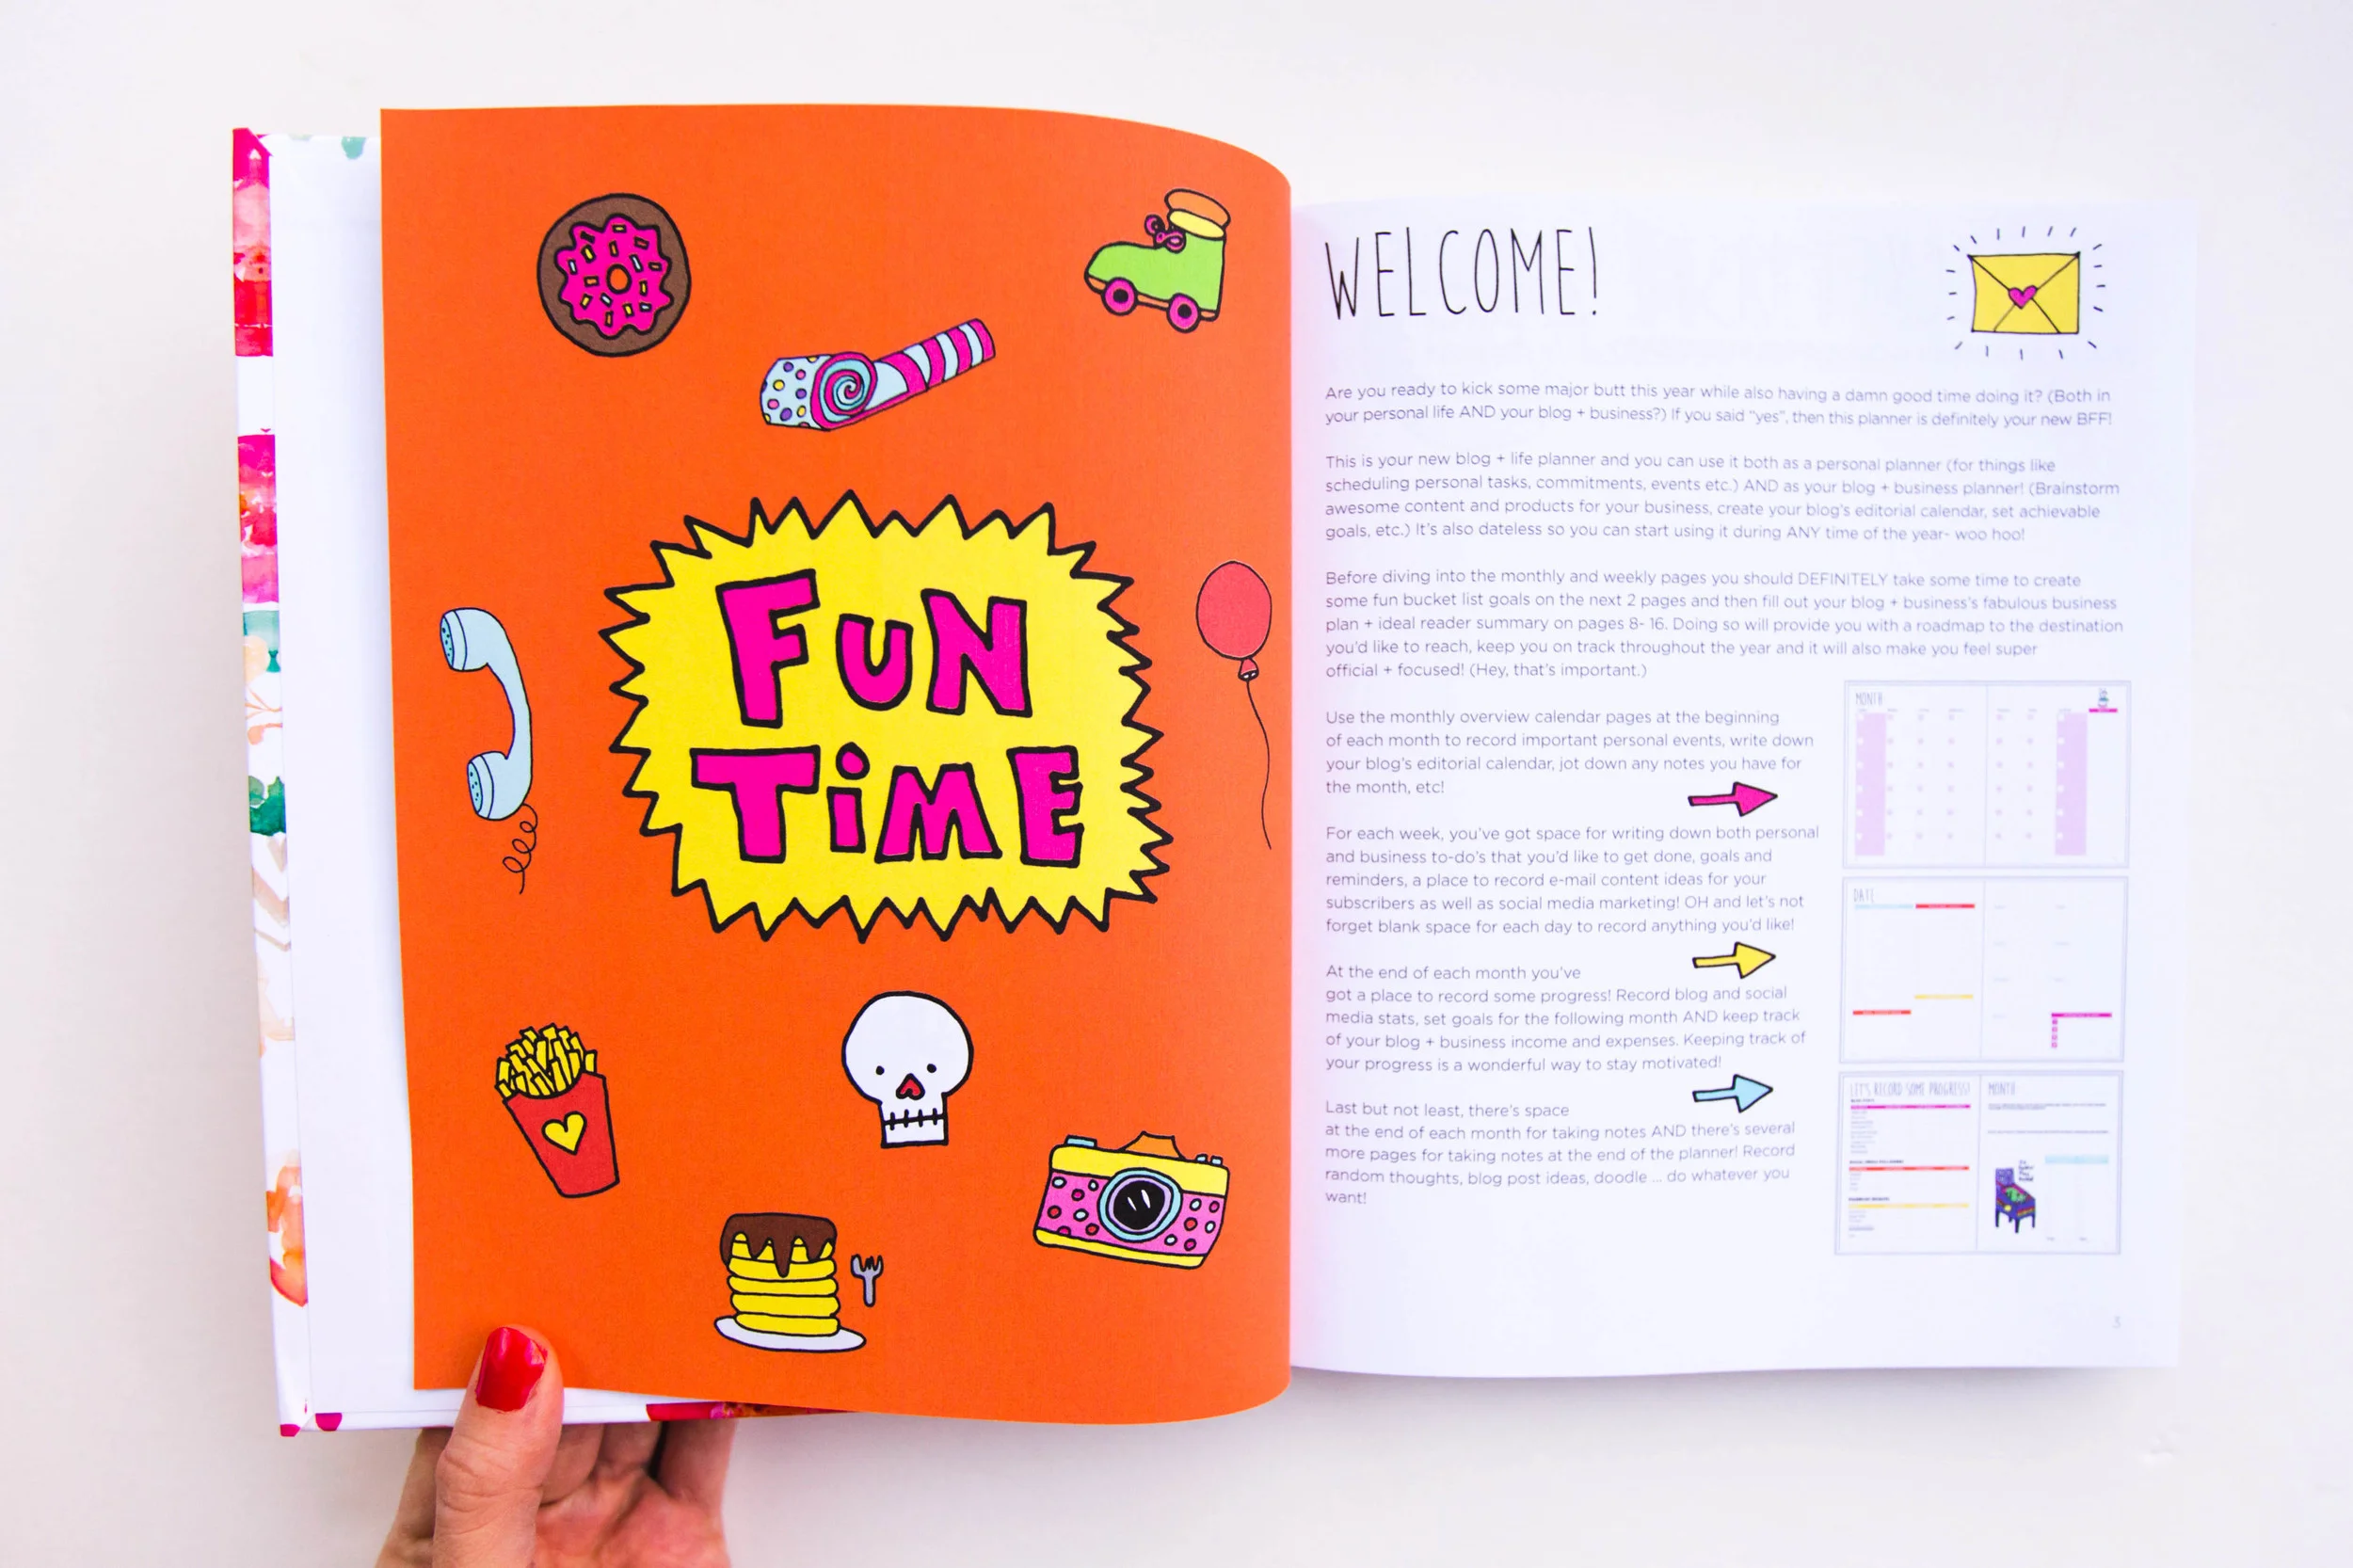 FUN
TiME
WELCOME!
Are you ready to kick some major butt this year while also having a damn good time doing it? (Both in
your personal life AND your blog + business?) If you said "yes", then this planner is definitely your new BFF!
This is your new blog + life planner and you can use it both as a personal planner (for things like
scheduling personal tasks, commitments, events etc.) AND as your blog + business planner! (Brainstorm
awesome content and products for your business, create your blog's editorial calendar, set achievable
goals, etc.) It's also dateless so you can start using it during ANY time of the year- woo hoo!
Before diving into the monthly and weekly pages you should DEFINITELY take some time to create
some fun bucket list goals on the next 2 pages and then fill out your blog + business's fabulous business
plan + ideal reader summary on pages 8- 16. Doing so will provide you with a roadmap to the destination
you'd like to reach, keep you on track throughout the year and it will also make you feel super
official + focused! (Hey, that's important.)
Use the monthly overview calendar pages at the beginning
of each month to record important personal events, write down
your blog's editorial calendar, jot down any notes you have for
the month, etc!
For each week, you've got space for writing down both personal
and business to-do's that you'd like to get done, goals and
reminders, a place to record e-mail content ideas for your
subscribers as well as social media marketing! OH and let's not
forget blank space for each day to record anything you'd like!
At the end of each month you've
got a place to record some progress! Record blog and social
media stats, set goals for the following month AND keep track
of your blog + business income and expenses. Keeping track of
your progress is a wonderful way to stay motivated!
Last but not least, there's space
at the end of each month for taking notes AND there's several
more pages for taking notes at the end of the planner! Record
random thoughts, blog post ideas, doodle ... do whatever you
want!
MONTH
DATE
LET'S RECORD SOME PROGRESS!
MONTH